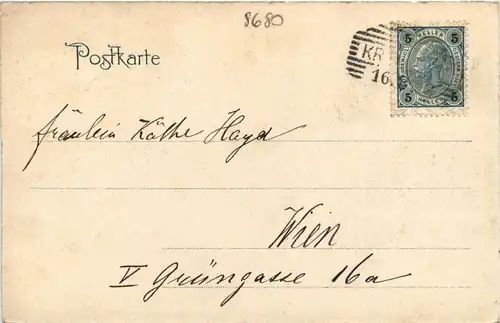 8680
Postkarte
KR
16.
5 HELLER 5
5 5
Fräulein Käthe Hayd
Wien
V Grüngasse 16a